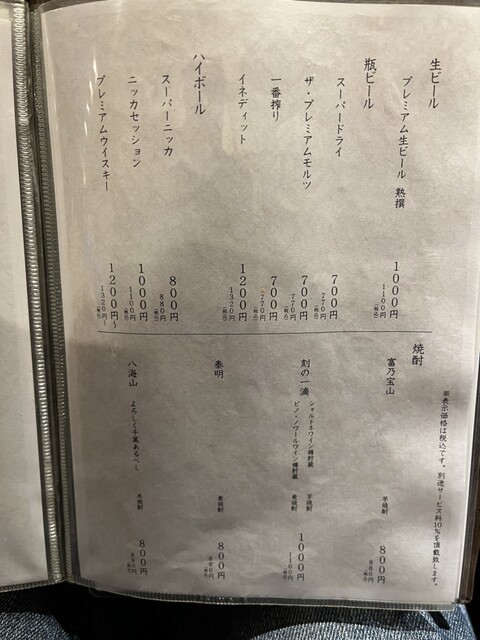 生ビール
プレミアム生ビール 熟撰 1000円
1100円(税込)
瓶ビール
スーパードライ 700円
770円(税込)
ザ・プレミアムモルツ 700円
770円(税込)
一番搾り 700円
770円(税込)
イネディット 1200円
1320円(税込)
ハイボール
スーパーニッカ 800円
880円(税込)
ニッカセッション 1000円
1100円(税込)
プレミアムウイスキー 1200円~
1320円~
※表示価格は税込です。別途サービス料10%を頂戴致します。
焼酎
富乃宝山 芋焼酎 800円
880円(税込)
刻の一滴 シャルドネワイン樽貯蔵 芋焼酎 1000円
ピノ・ノワールワイン樽貯蔵 麦焼酎 1100円(税込)
泰明 麦焼酎 800円
880円(税込)
八海山 よろしく千萬あるべし 米焼酎 800円
880円(税込)